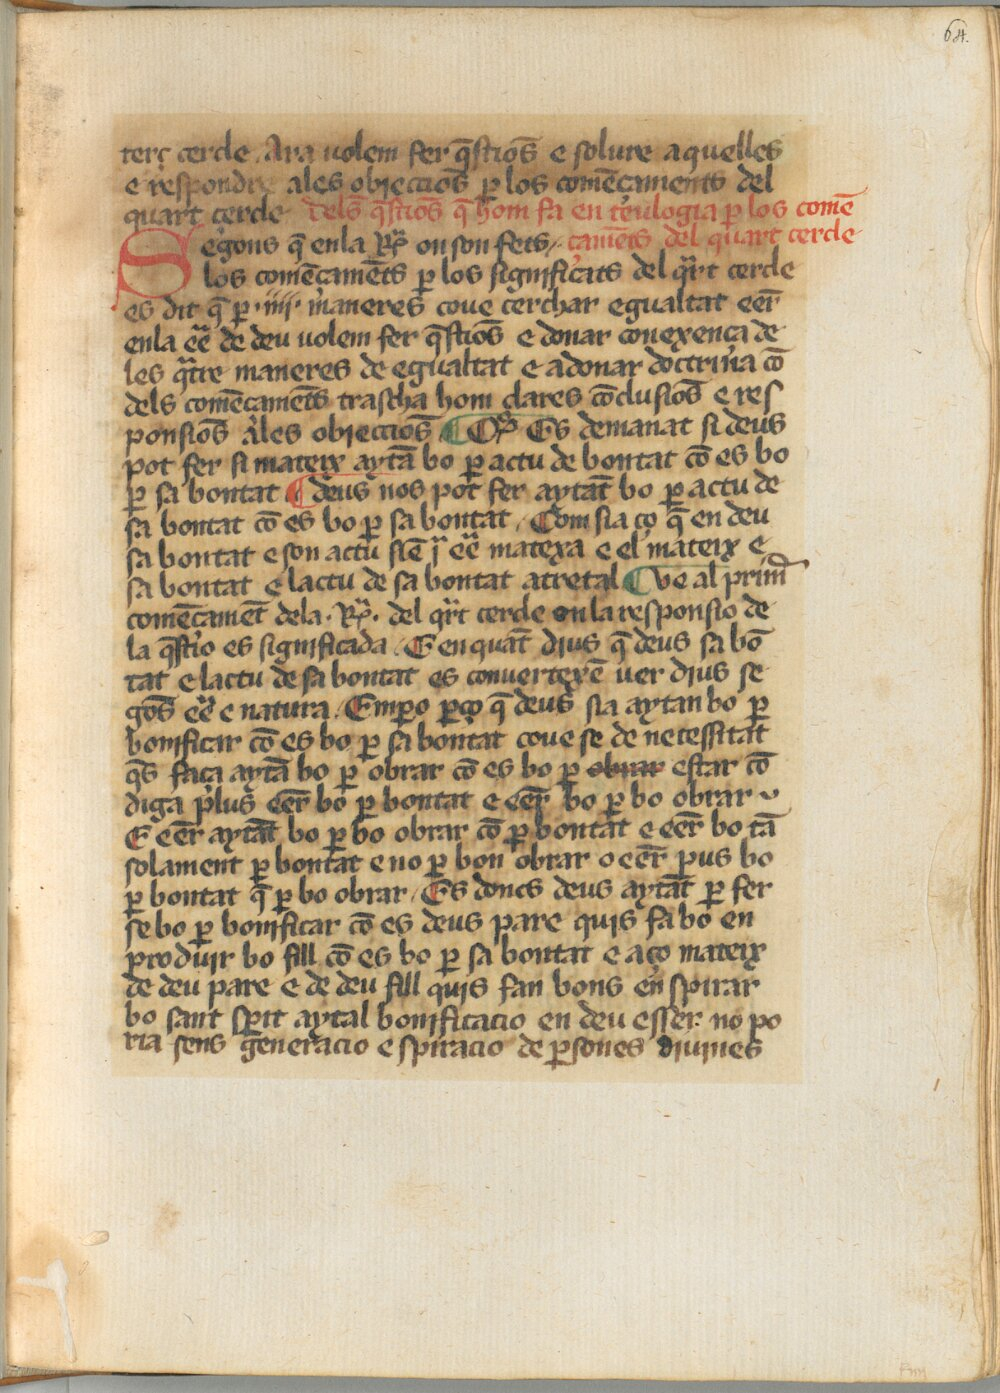 64.
terç cercle. Ara volem fer q̄stiōs e solure aquelles
e respondre ales obiecciōs ꝑ los comēçaments del
quart cercle dels q̄stiōs q̄ hom fa en teulogia ꝑ los comē
Segons q̄ en la Rª on son fets, çamēts del quart cercle
los comēçamēts ꝑ los significats del qrt cercle
es dit q̄ ꝑ .iiij. maneres cove cerchar egualtat eēr
enla eē de deu volem fer q̄stiōs e donar conexença de
les qtre maneres de egualtat e a donar doctrina cō
dels comēçamēts trascha hom clares cōclusiōs e res
ponsiōs ales obiecciōs Es demanat si deus
pot fer si mateix aytā bo ꝑ actu de bontat cō es bo
ꝑ sa bontat deus nos pot fer aytāt bo ꝑ actu de
sa bontat cō es bo ꝑ sa bontat, Com sia ço q̄ en deu
sa bontat e son actu siē j eē matexa e el mateix e
sa bontat e lactu de sa bontat atretal ve al prim
comēçamēt dela .Rª. del qrt cercle on la responsio de
la q̄stio es significada. E en quāt dius q̄ deus sa bō
tat e lactu de sa bontat es convertexē ver dius se
gōs eē e natura. Emꝑo ꝑço q̄ deus sia aytan bo ꝑ
bonificar cō es bo ꝑ sa bontat cove se de necessitat
q̄s faça aytā bo ꝑ obrar cō es bo ꝑ obrar estar cō
diga plus eēr bo ꝑ bontat e eēr bo ꝑ bo obrar
E eēr aytāt bo ꝑ bo obrar cō ꝑ bontat e eēr bo tā
solament ꝑ bontat e no ꝑ bon obrar o eēr pus bo
ꝑ bontat q̄ ꝑ bo obrar. Es doncs deus aytāt ꝑ fer
se bo ꝑ bonificar cō es deus pare quis fa bo en
produir bo fill cō es bo ꝑ sa bontat e aço mateix
de deu pare e de deu fill quis fan bons en spirar
bo sant spit aytal bonificacio en deu esser no po
ria sens generacio e spiracio de ꝑsones divines